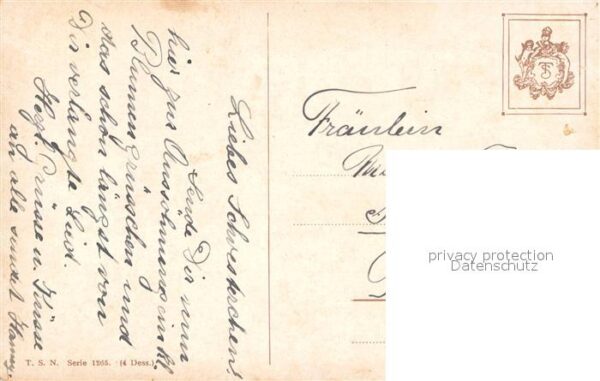 Liebes Schwesterchen!
Sende Dir nun
hier zur Aussöhnung ein kl.
Blumengrüsschen und
das schon längst von
Dir verlangte Lied.
Herzl. Grüsse u. Küsse
an alle sendet
Fräulein
T. S. N. Serie 1265. (4 Dess.)
TS
privacy protection
Datenschutz